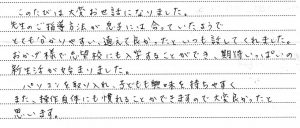 このたびは大変お世話になりました。
先生のご指導方法が息子には合っていたようで
とても分かりやすい、通えて良かったといつも話してくれました。
おかげ様で志望校にも入学することができ、期待いっぱいの
新生活が始まりました。
パソコンを取り入れ、子どもも興味を持ちやすく
また、操作自体にも慣れることができますので大変良かったと
思います。